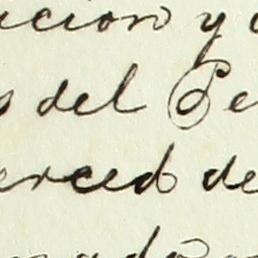 ucion y
s del Pe
erced de